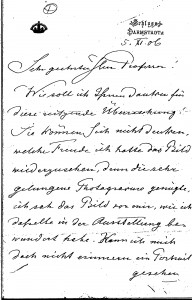 Schloss
DARMSTADT
5. XI 06
Sehr geehrter Herr Professor!
Wie soll ich Ihnen danken für
diese reizende Überraschung!
Sie können sich nicht denken,
welche Freude ich hatte das Bild
wiederzusehen, denn die sehr
gelungene Photogravure genügte,
ich sah das Bild vor mir, wie ich
dasselbe in der Ausstellung be-
wundert habe. Kann ich mich
doch nicht erinnern ein Portrait
gesehen